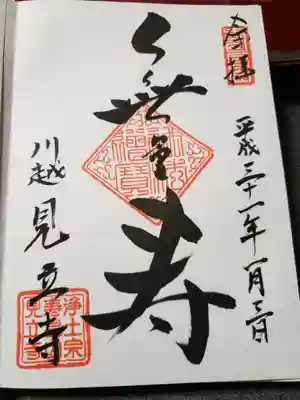 奉拝
平成三十一年一月三日
無量寿
佛法僧寶
川越 見立寺
浄土宗
見立寺